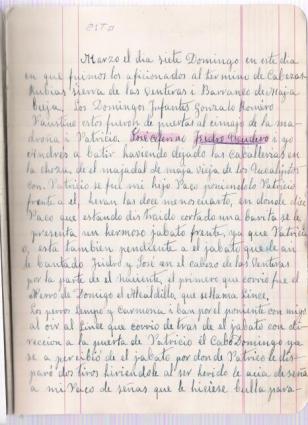 Marzo el dia siete Domingo en este dia
en que fuimos los aficionados al termino de Cabezas
Rubias sierra de las Venturas i Barranco de Maja
Vieja. Los Domingos Infantes Gonzalo Romero
Faustino estos fueron de puertas al cimajo de la ma
droña i Patricio. José Isidro i yo
a batir haviendo dejado las Caballerias en
la choza, de el majadal de maja vieja de los Eucaliptos
con Patricio se fue mi hijo Paco poniendolo Patricio
frente a el, heran las doce menos cuarto, en donde dice
Paco que estando distraido cortado una barita se le
presenta un hermoso jabato frente, ya que Patrici
o, esta tambien pendiente a el jabato que
lebantado Isidro y José en el cabezo de las Venturas
por la parte de el naciente, el primero que corrio fue el
Perro de Domigo el Alcaldillo, que se llama Lince.
Los perros y Carmona i ban por el poniente con migo
al oir al Lince que corrio detras de el jabato con di-
rección a la puerta de Patricio él Cabo Domingo ya
se a percibió de el jabato por don de Patricio le dis-
paró dos tiros hiriendole al ser herido le acia de seña
a mi Paco de señas que le hiciese bulla para-